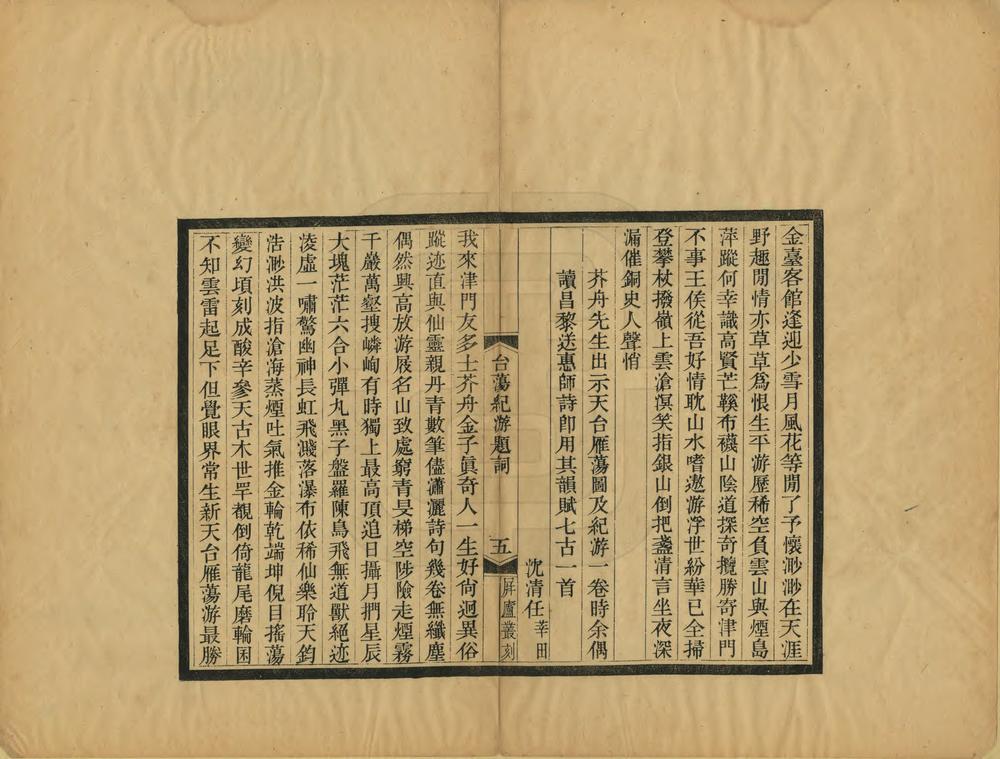 金臺客館逢迎少雪月風花等閒了予懷渺渺在天涯
野趣閒情亦草草爲恨生平游歷稀空負雲山與煙島
萍蹤何幸識高賢芒鞵布襪山陰道探奇攬勝寄津門
不事王侯從吾好情耽山水嗜遨游浮世紛華已全掃
登攀杖撥嶺上雲滄溟笑指銀山倒把盞清言坐夜深
漏催銅史人聲悄
芥舟先生出示天台雁蕩圖及紀游一卷時余偶
讀昌黎送惠師詩卽用其韻賦七古一首
沈清任 莘田
台蕩紀游題詞
五
屏廬叢刻
我來津門友多士芥舟金子眞奇人一生好尙迥異俗
蹤迹直與仙靈親丹青數筆儘瀟灑詩句幾卷無纖塵
偶然興高放游屐名山致處窮青旻梯空陟險走煙霧
千巖萬壑搜嶙峋有時獨上最高頂追日攝月捫星辰
大塊茫茫六合小彈丸黑子盤羅陳鳥飛無道獸絕迹
淩虛一嘯驚幽神長虹飛濺落瀑布依稀仙樂聆天鈞
浩渺洪波指滄海蒸煙吐氣推金輪乾端坤倪目搖蕩
變幻頃刻成酸辛參天古木世罕覩倒倚龍尾磨輪囷
不知雲雷起足下但覺眼界常生新天台雁蕩游最勝